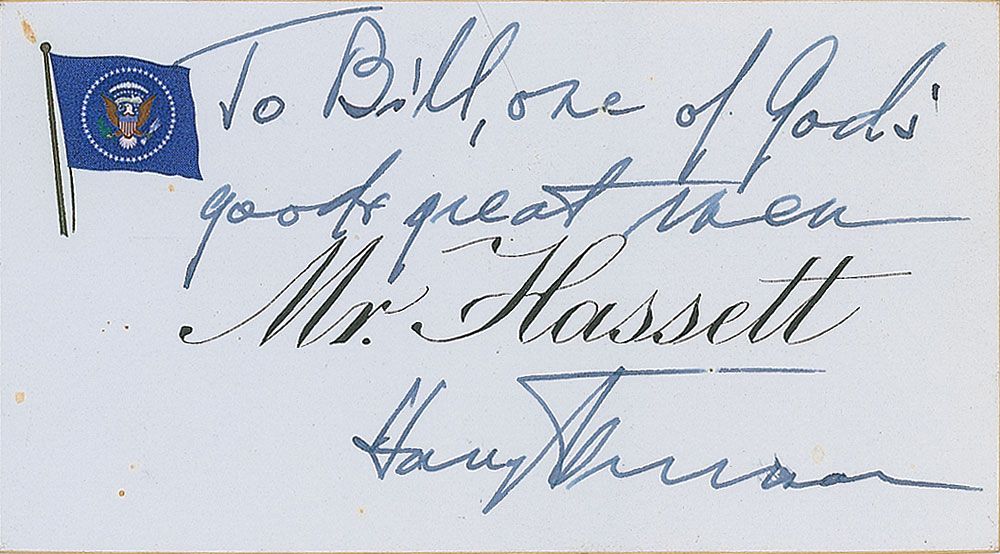 To Bill, one of God's
good & great men
Mr. Hassett
Harry Truman